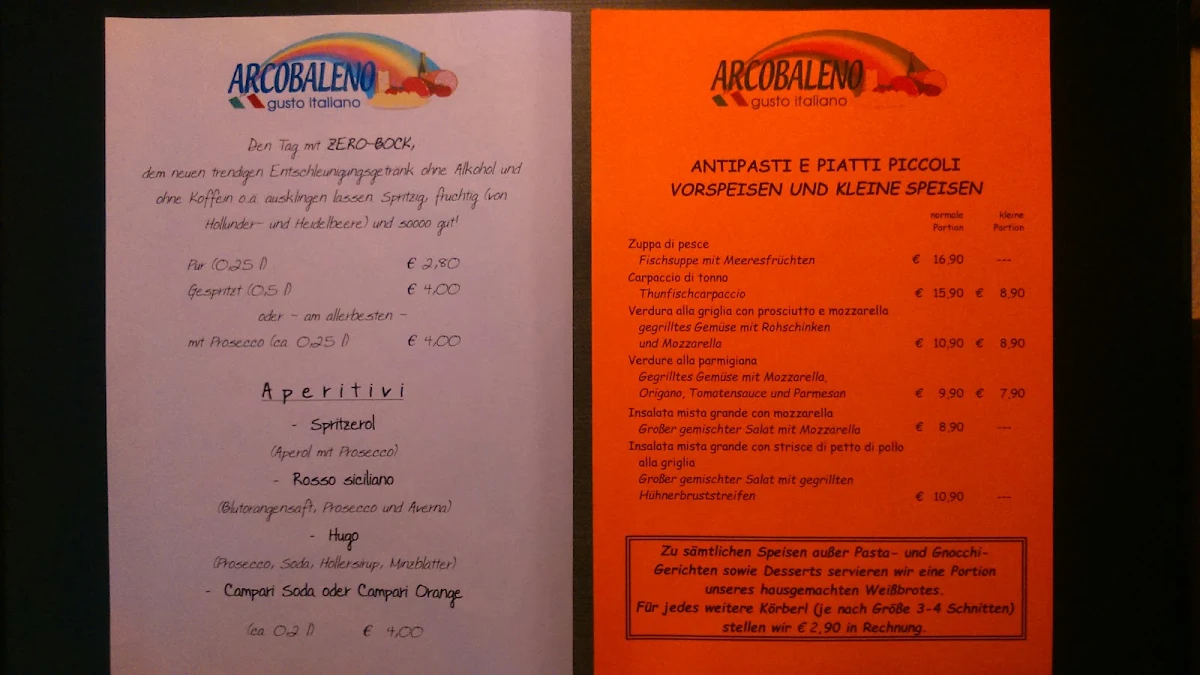 ARCOBALENO
gusto italiano
Den Tag mit ZERO-BOCK,
dem neuen trendigen Entschleunigungsgetränk ohne Alkohol und
ohne Koffein o.ä. ausklingen lassen. Spritzig, fruchtig (von
Hollunder- und Heidelbeere) und soooo gut!
Pur (0,25 l) € 2,80
Gespritzt (0,5 l) € 4,00
oder - am allerbesten -
mit Prosecco (ca. 0,25 l) € 4,00
Aperitivi
- Spritzerol
(Aperol mit Prosecco)
- Rosso siciliano
(Blutorangensaft, Prosecco und Averna)
- Hugo
(Prosecco, Soda, Hollersirup, Minzblätter)
- Campari Soda oder Campari Orange
(ca. 0,2 l) € 4,00
ARCOBALENO
gusto italiano
ANTIPASTI E PIATTI PICCOLI
VORSPEISEN UND KLEINE SPEISEN
normale kleine
Portion Portion
Zuppa di pesce
Fischsuppe mit Meeresfrüchten € 16,90 ---
Carpaccio di tonno
Thunfischcarpaccio € 15,90 € 8,90
Verdura alla griglia con prosciutto e mozzarella
gegrilltes Gemüse mit Rohschinken
und Mozzarella € 10,90 € 8,90
Verdure alla parmigiana
Gegrilltes Gemüse mit Mozzarella,
Origano, Tomatensauce und Parmesan € 9,90 € 7,90
Insalata mista grande con mozzarella
Großer gemischter Salat mit Mozzarella € 8,90 ---
Insalata mista grande con strisce di petto di pollo
alla griglia
Großer gemischter Salat mit gegrillten
Hühnerbruststreifen € 10,90 ---
Zu sämtlichen Speisen außer Pasta- und Gnocchi-
Gerichten sowie Desserts servieren wir eine Portion
unseres hausgemachten Weißbrotes.
Für jedes weitere Körberl (je nach Größe 3-4 Schnitten)
stellen wir € 2,90 in Rechnung.